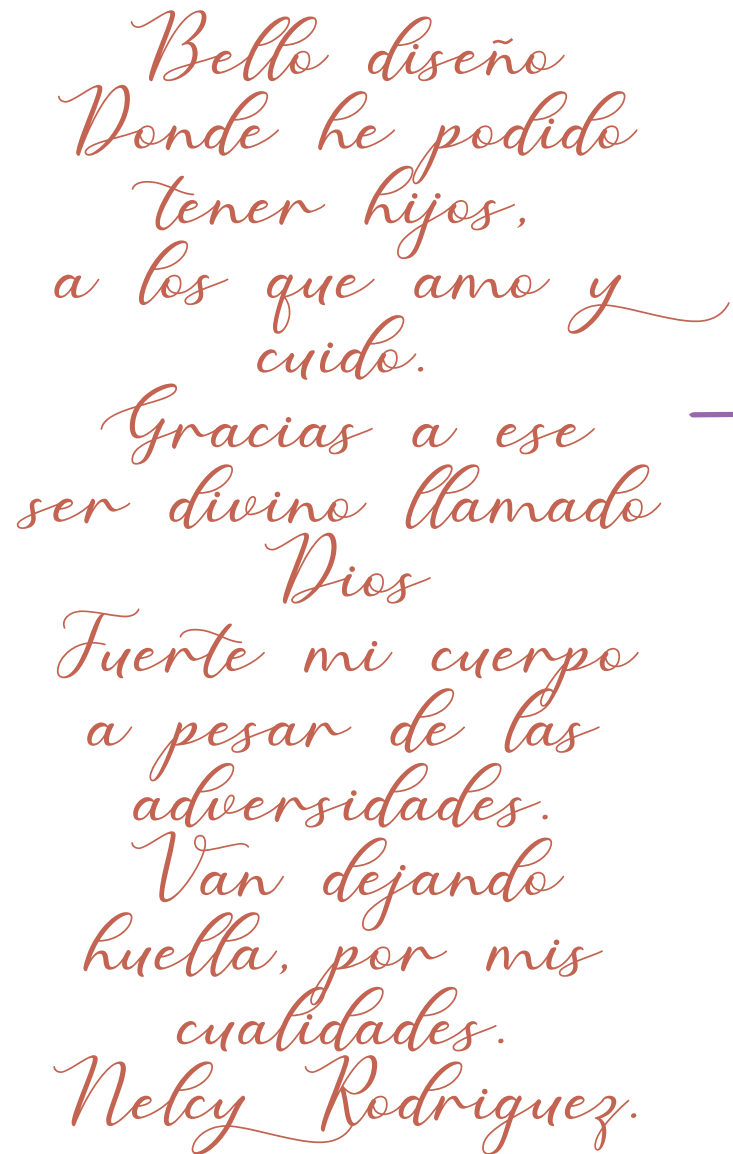 Bello diseño
Donde he podido
tener hijos,
a los que amo y
cuido.
Gracias a ese
ser divino llamado
Dios
Fuerte mi cuerpo
a pesar de las
adversidades.
Van dejando
huella, por mis
cualidades.
Nelcy Rodriguez.